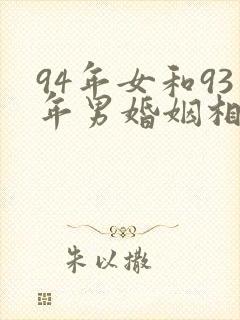 94年女和93
年男婚姻相
朱以撒